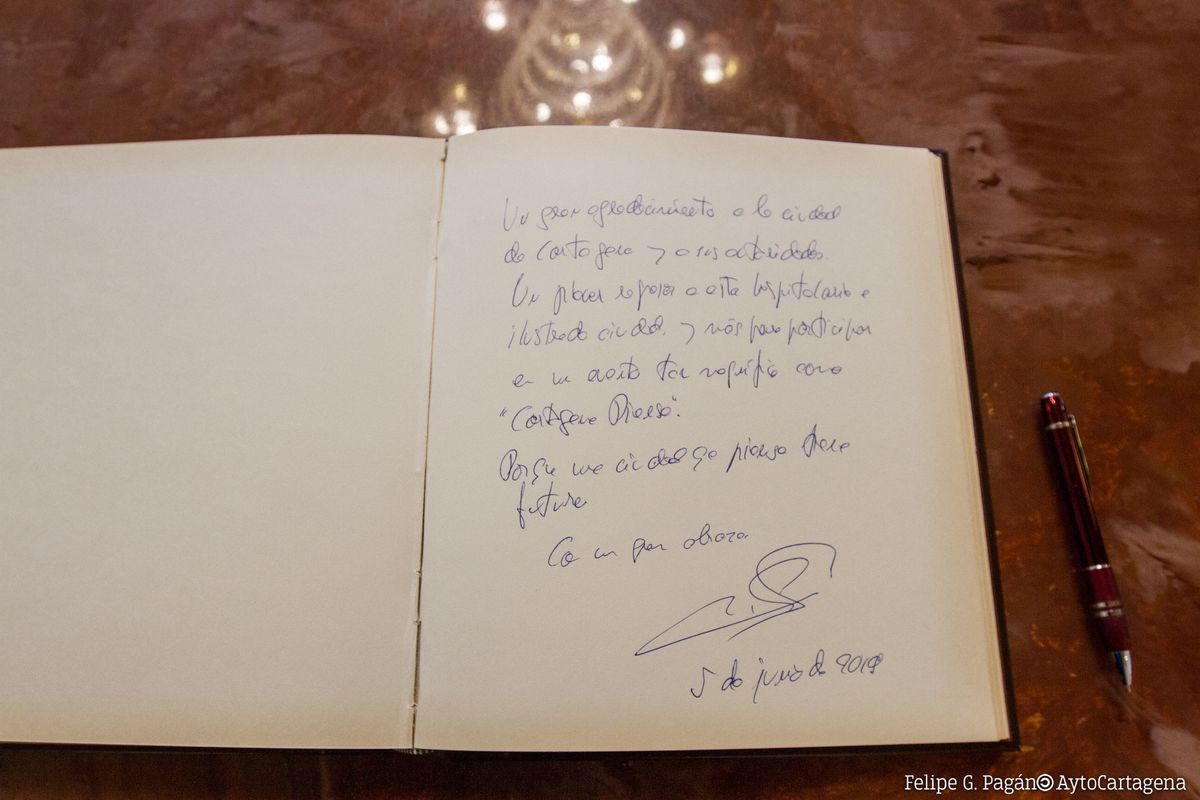 Un gran agradecimiento a la ciudad
de Cartagena y a sus autoridades.
Un placer regresar a esta hospitalaria e
ilustrada ciudad. y más para participar
en un evento tan magnífico como
"Cartagena Piensa".
Porque una ciudad que piensa tiene
futuro
Con un gran abrazo
5 de junio de 2019
Felipe G. Pagán AytoCartagena